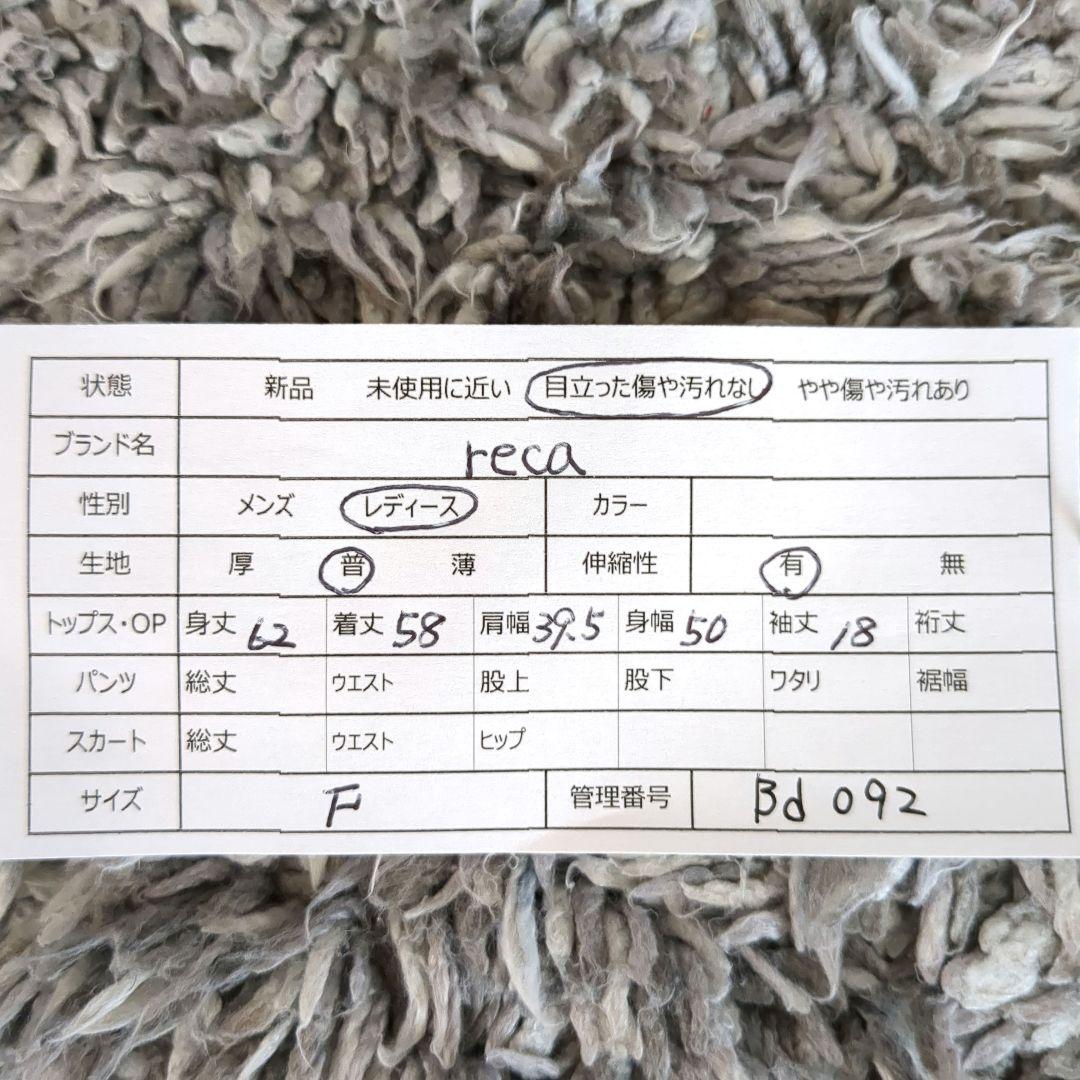 状態 新品 未使用に近い 目立った傷や汚れなし やや傷や汚れあり
ブランド名 reca
性別 メンズ レディース カラー
生地 厚 普 薄 伸縮性 有 無
トップス・OP 身丈 62 着丈 58 肩幅 39.5 身幅 50 袖丈 18 裄丈
パンツ 総丈 ウエスト 股上 股下 ワタリ 裾幅
スカート 総丈 ウエスト ヒップ
サイズ F 管理番号 Bd 092